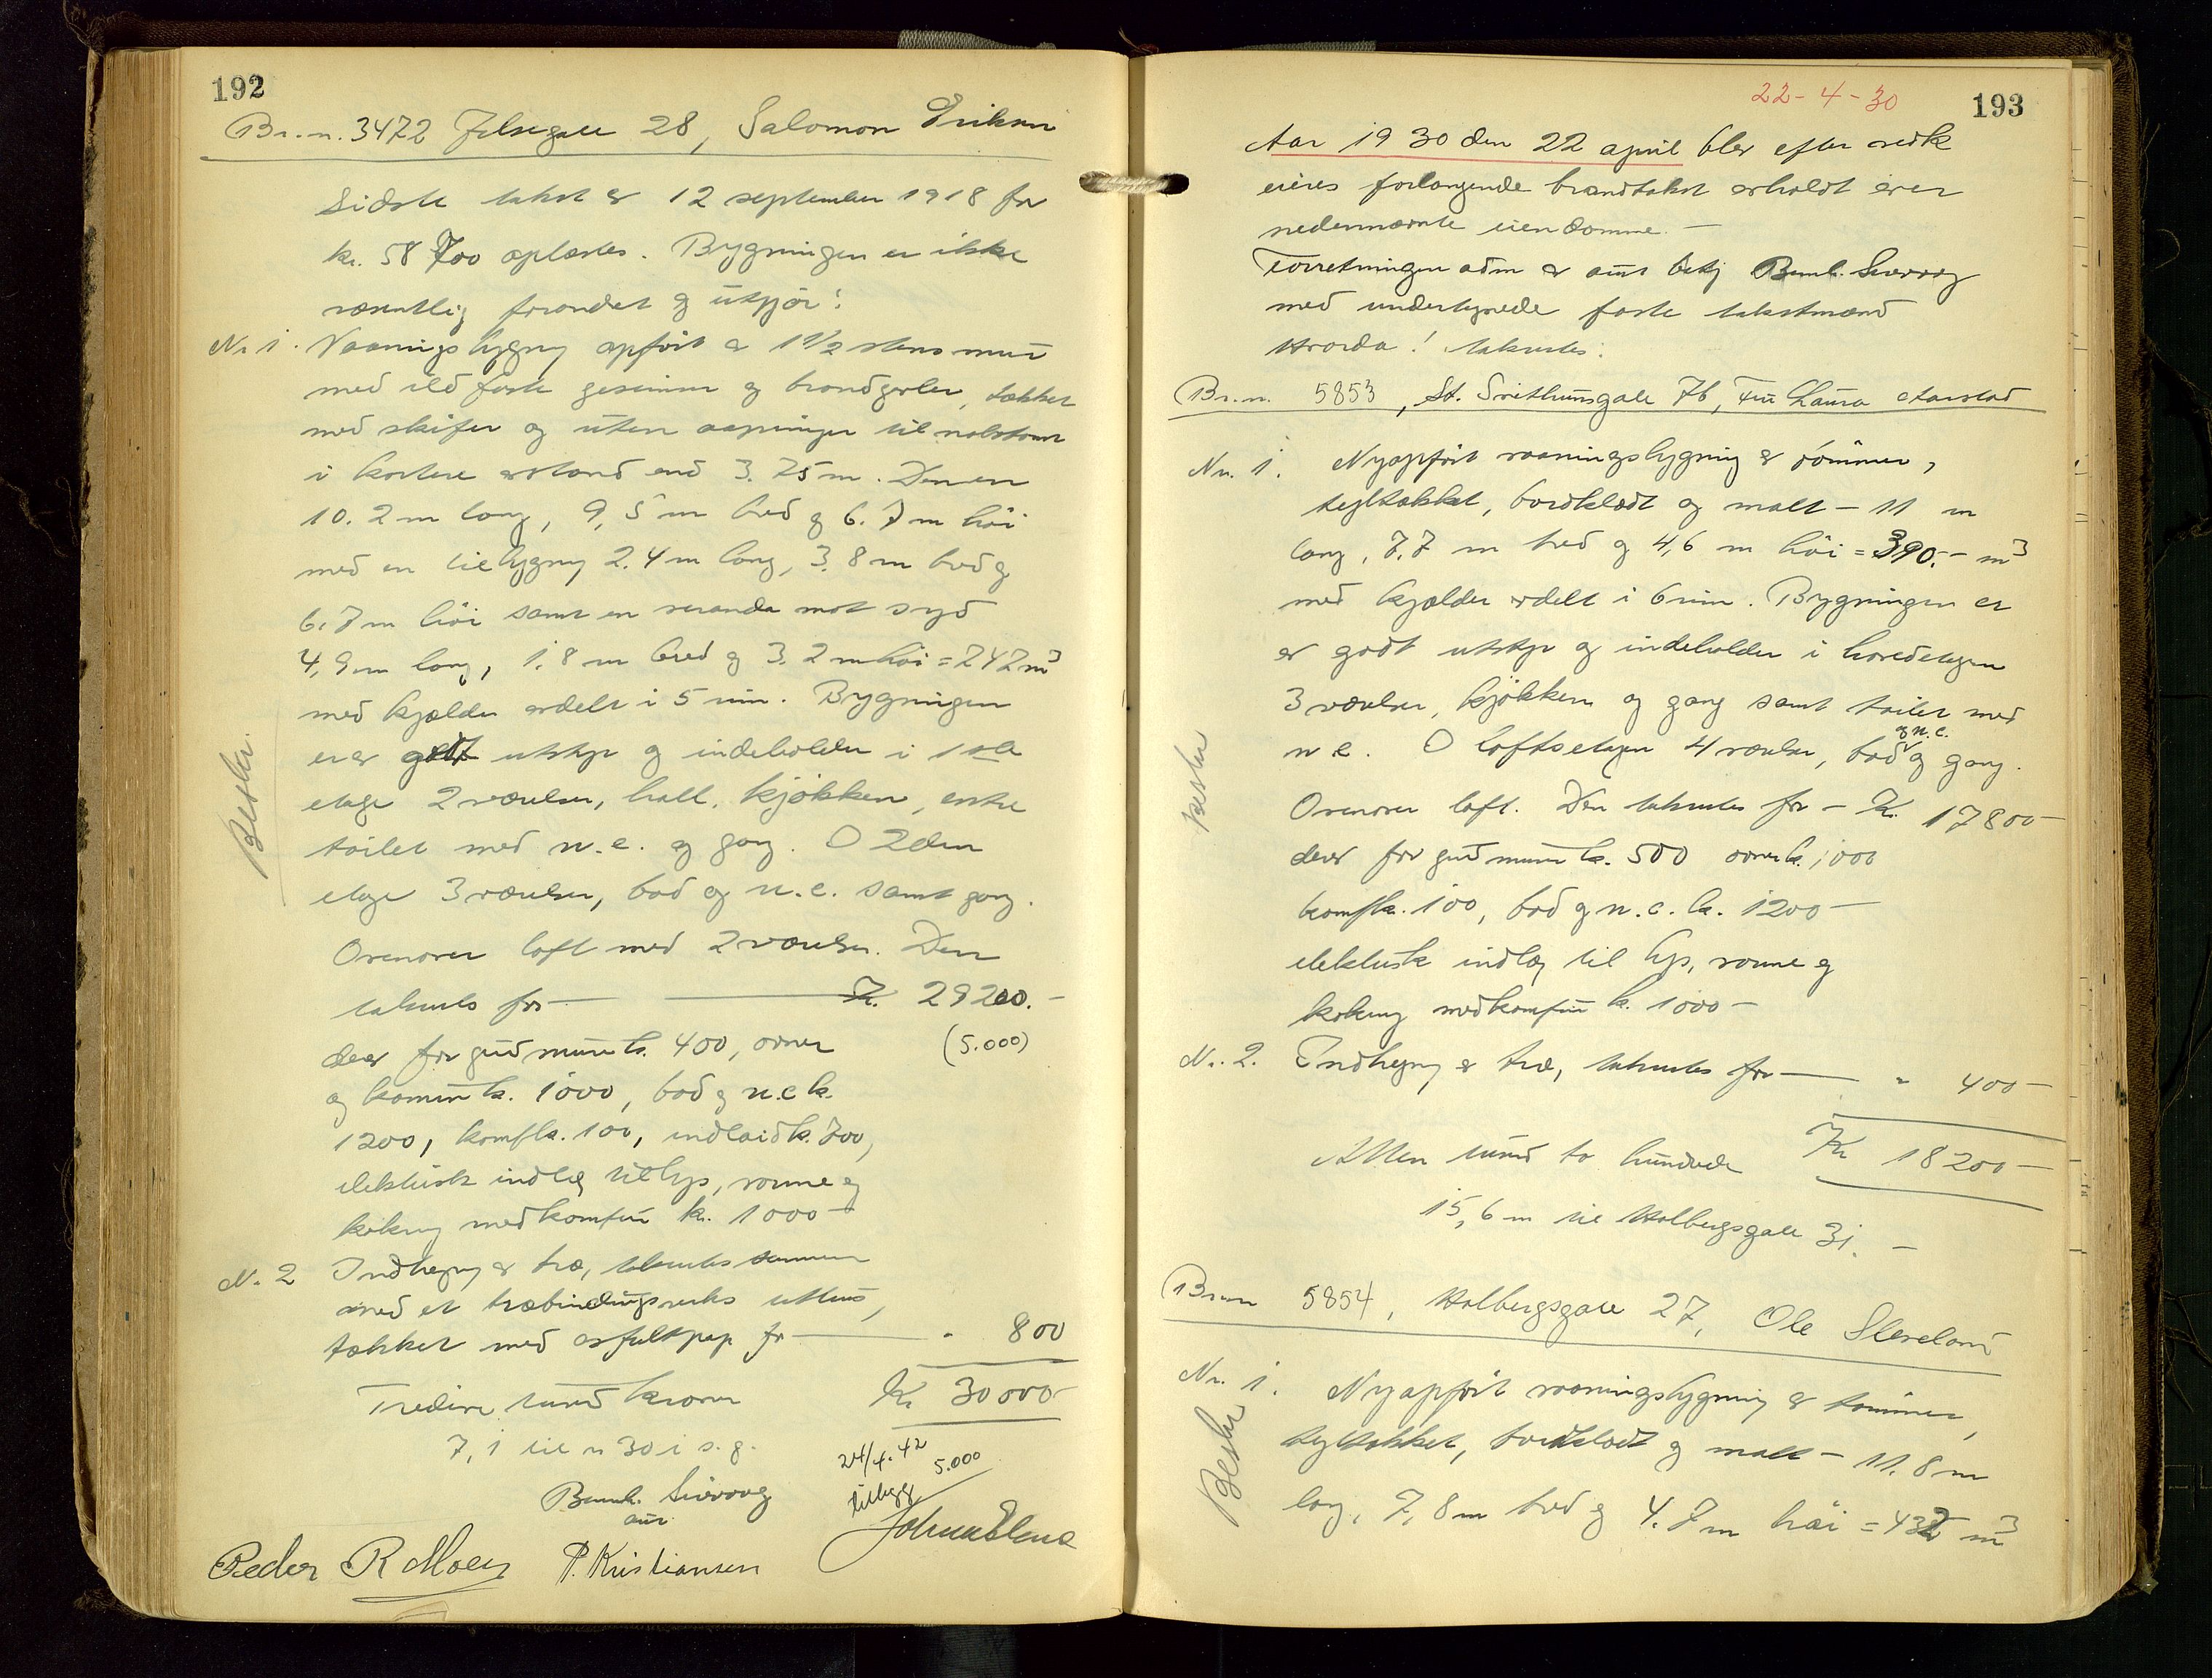 192
Br.n. 3472 Jelsegate 28, Salomon Eriksen
Sidste takst av 12 september 1918 for
kr. 58 700 oplæstes. Bygningen er ikke
væsentlig forandret og utgjør:
Nr. 1. Vaaningsbygning opført av 1 1/2 stens mur
med ildfaste gesimser og brandgavler, tækket
med skifer og uten aapninger til nabotomt
i kortere avstand end 3.75 m. Den er
10.2 m lang, 9,5 m bred og 6.7 m høi
med en tilbygning 2.4 m lang, 3.8 m bred og
6.7 m høi samt en veranda mot syd
4,9 m lang, 1.8 m bred og 3.2 m høi = 742 m3
med kjælder avdelt i 5 rum. Bygningen
er av godt utstyr og indeholder i 1ste
etage 2 værelser, hall, kjøkken, entre
toilet med w.c. og gang. I 2den
etage 3 værelser, bad og w.c. samt gang.
Ovenover loft med 2 værelser. Den
takseres for Kr. 29200.-
derav for grundmure kr. 400, ovner (5.000)
og kamin kr. 1000, bad og w.c. kr.
1200, komf kr. 100, indlaid kr. 700,
elektrisk indlæg til lys, varme og
kokning med komfur kr. 1000 -
Nr. 2 Indhegning av træ, takseres sammen
med et træbindingsverks uthus,
tækket med asfaltpap for " 800
Tredive tusind kroner Kr 30000-
7,1 til nr 30 i s. g.
24/4. 42
tillegg 5.000
Bernh. Sivevaag
aut.
Peder R Moen P. Kristiansen
193
22-4-30
Aar 1930 den 22 april blev efter vedk
eieres forlangende brandtakst avholdt over
nedennævnte eiendomme. -
Forretningen adm av aut bestyr Bernh. Sivevaag
med undertegnede faste takstmænd
Hvorda! takseres:
Br.n. 5853, St. Svithunsgate 7b, Fru Laura Aarstad
Nr. 1. Nyopført vaaningsbygning av tømmer,
tegltækket, bordklædt og malt - 11 m
lang, 7.7 m bred og 4,6 m høi = 390.- m3
med kjælder avdelt i 6 rum. Bygningen er
av godt utstyr og indeholder i hovedetagen
3 værelser, kjøkken og gang samt toilet med
w.c. I loftsetagen 4 værelser, bad og w.c. og gang.
Ovenover loft. Den takseres for - Kr. 17800 -
derav for grundmure kr. 500 ovner kr. 1000
komf kr. 100, bad og w.c. kr. 1200 -
elektrisk indlæg til lys, varme og
kokning med komfur kr. 1000 -
Nr. 2. Indhegning av træ, takseres for " 400 -
Atten tusind to hundrede Kr 18200 -
15,6 m til Holbergsgate 31. -
Br.nr 5854, Holbergsgate 27, Ole Sleveland
Nr. 1. Nyopført vaaningsbygning av tømmer,
tegltækket, bordklædt og malt - 11.8 m
lang, 7,8 m bred og 4.7 m høi = 432 m3